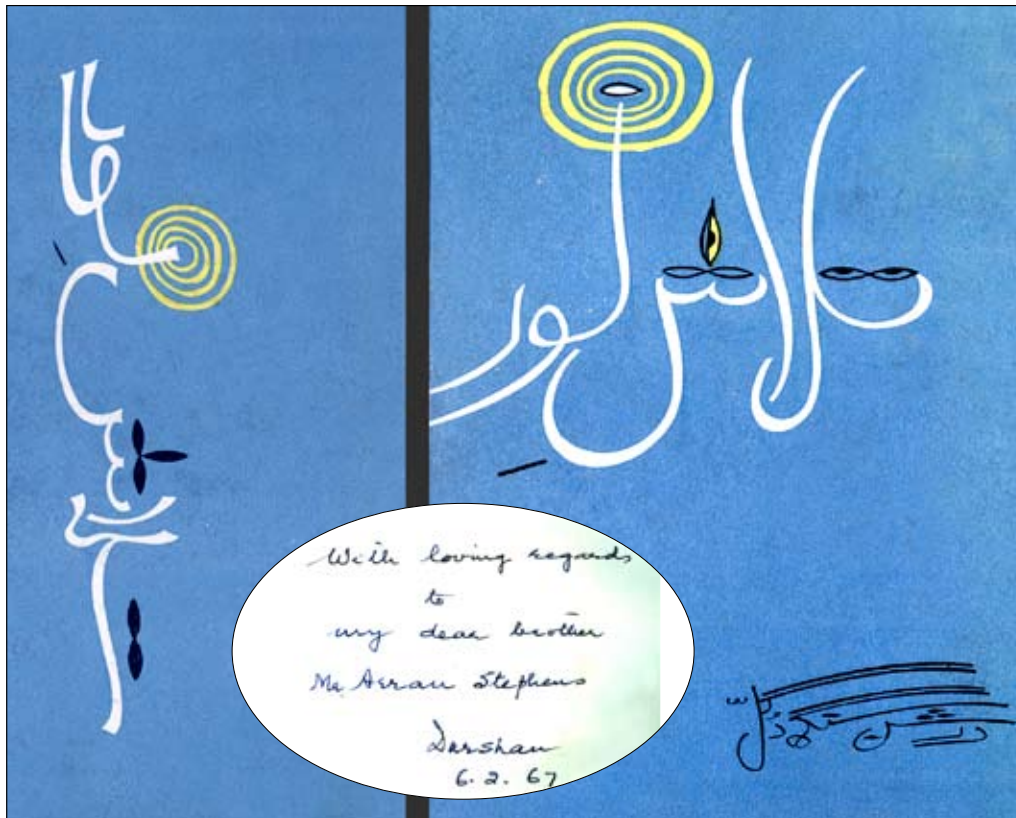 تلاشِ نور
تلاشِ نور
درشن سنگھ دُگل
With loving regards
to
my dear brother
Mr Arran Stephens
Darshan
6.2.67